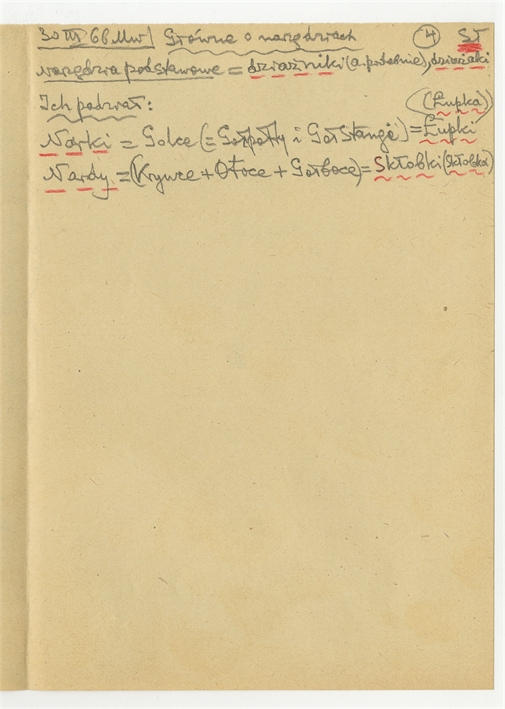 30 III 66 Mw/ Główne o narzędziach (4) SŁ
narzędzia podstawowe = działniki (a. podobnie), działaki
Ich podział: (Łupka)
Narki = Golce (= Gołpałły i Gołstangé) = Łupki
Nardy = (Krywce + Otoce + Gołboce) = Skłobki (skłobka)